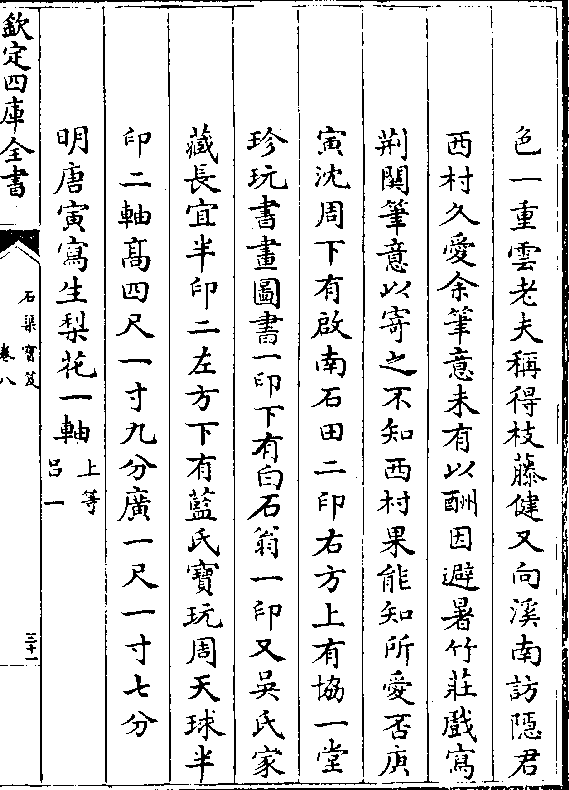 色一重雲老夫稱得枝藤健又向溪南訪隱君
西村久愛余筆意未有以酬因避暑竹莊戲寫
荆關筆意以寄之不知西村果能知所愛否庚
寅沈周下有啟南石田二印右方上有協一堂
珍玩書畫圖書一印下有白石翁一印又吳氏家
藏長宜半印二左方下有藍氏寶玩周天球半
印二軸髙四尺一寸九分廣一尺一寸七分
明唐寅寫生梨花一軸
上等
吕一
欽定四庫全書
石渠寶笈
卷八
三十一